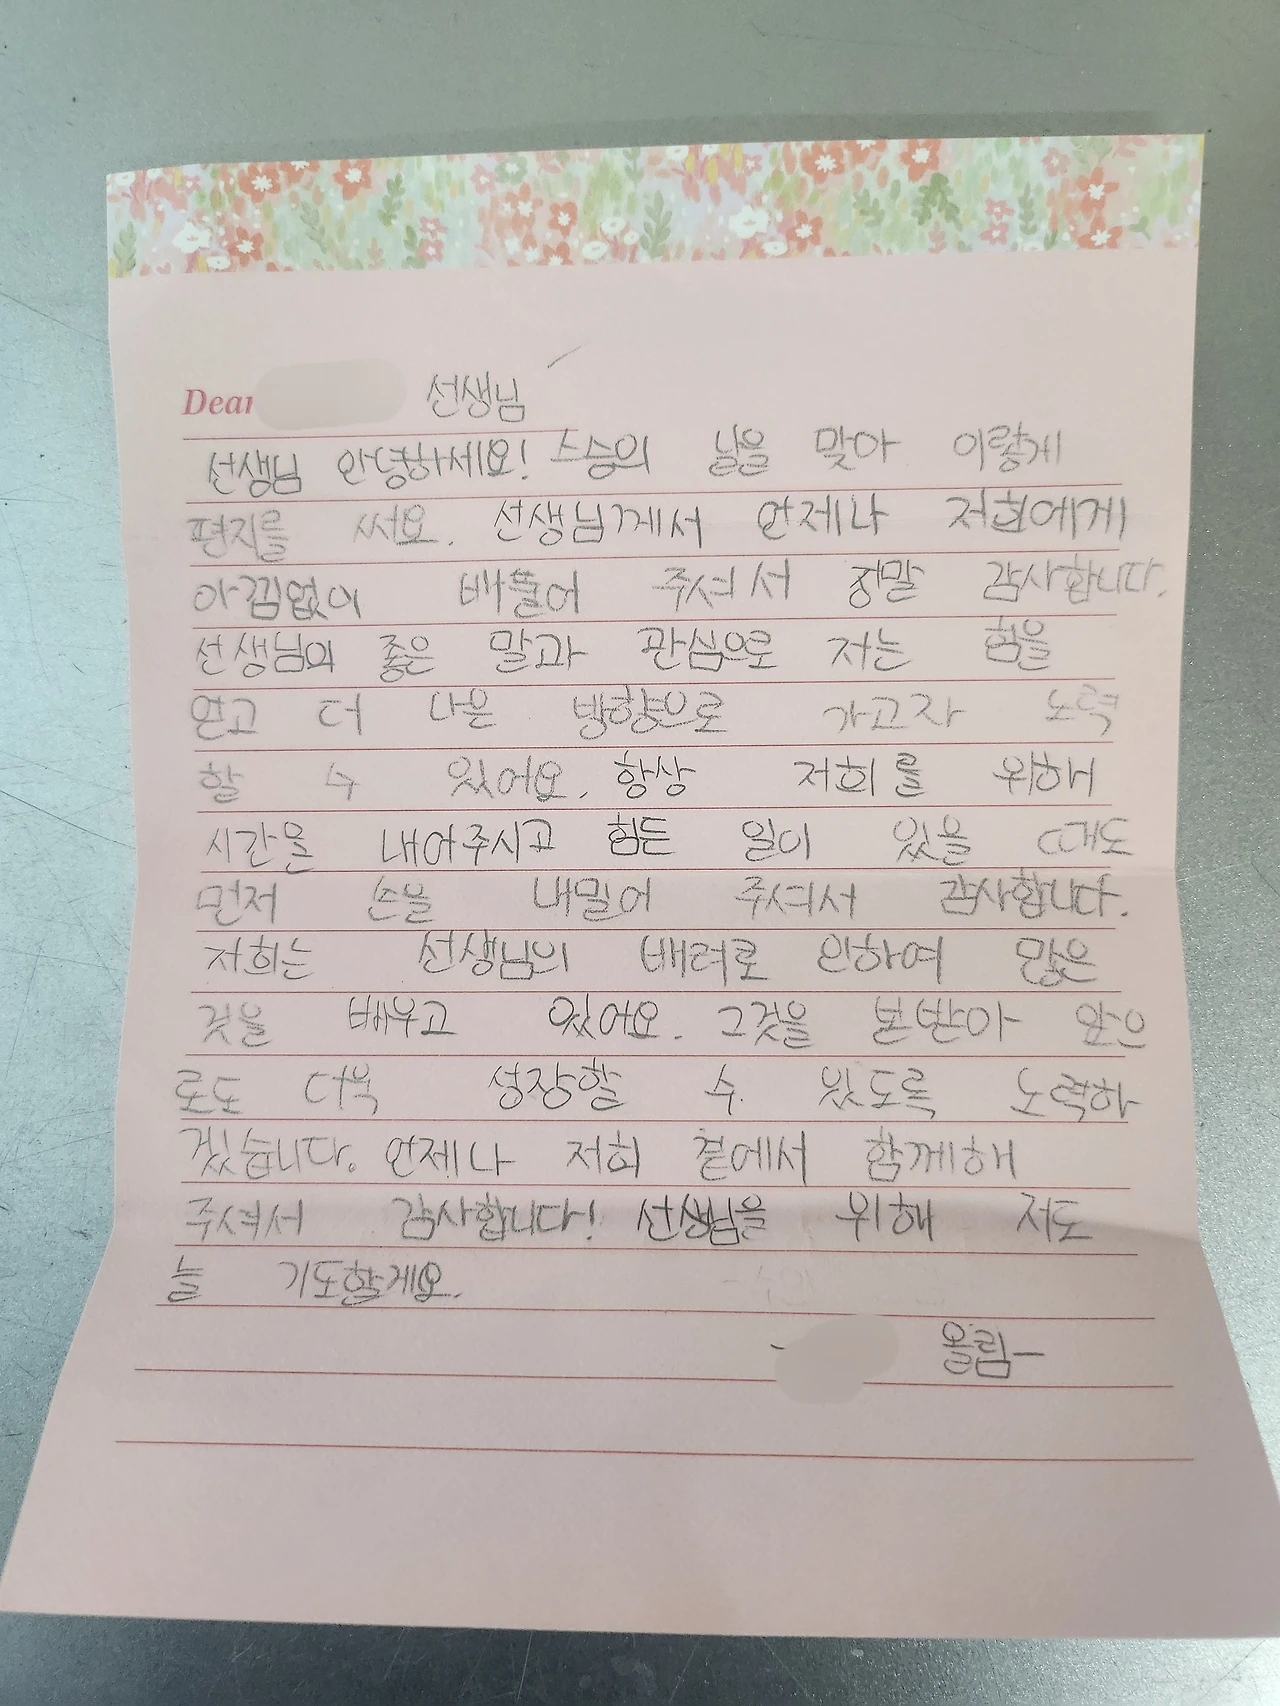 Dear 선생님
선생님 안녕하세요! 스승의 날을 맞아 이렇게
편지를 써요. 선생님께서 언제나 저희에게
아낌없이 베풀어 주셔서 정말 감사합니다.
선생님의 좋은 말과 관심으로 저는 힘을
얻고 더 나은 방향으로 가고자 노력
할 수 있어요. 항상 저희를 위해
시간을 내어주시고 힘든 일이 있을 때도
먼저 손을 내밀어 주셔서 감사합니다.
저희는 선생님의 배려로 인하여 많은
것을 배우고 있어요. 그것을 본받아 앞으
로도 더욱 성장할 수 있도록 노력하
겠습니다. 언제나 저희 곁에서 함께해
주셔서 감사합니다! 선생님을 위해 저도
늘 기도할게요.
- 올림-